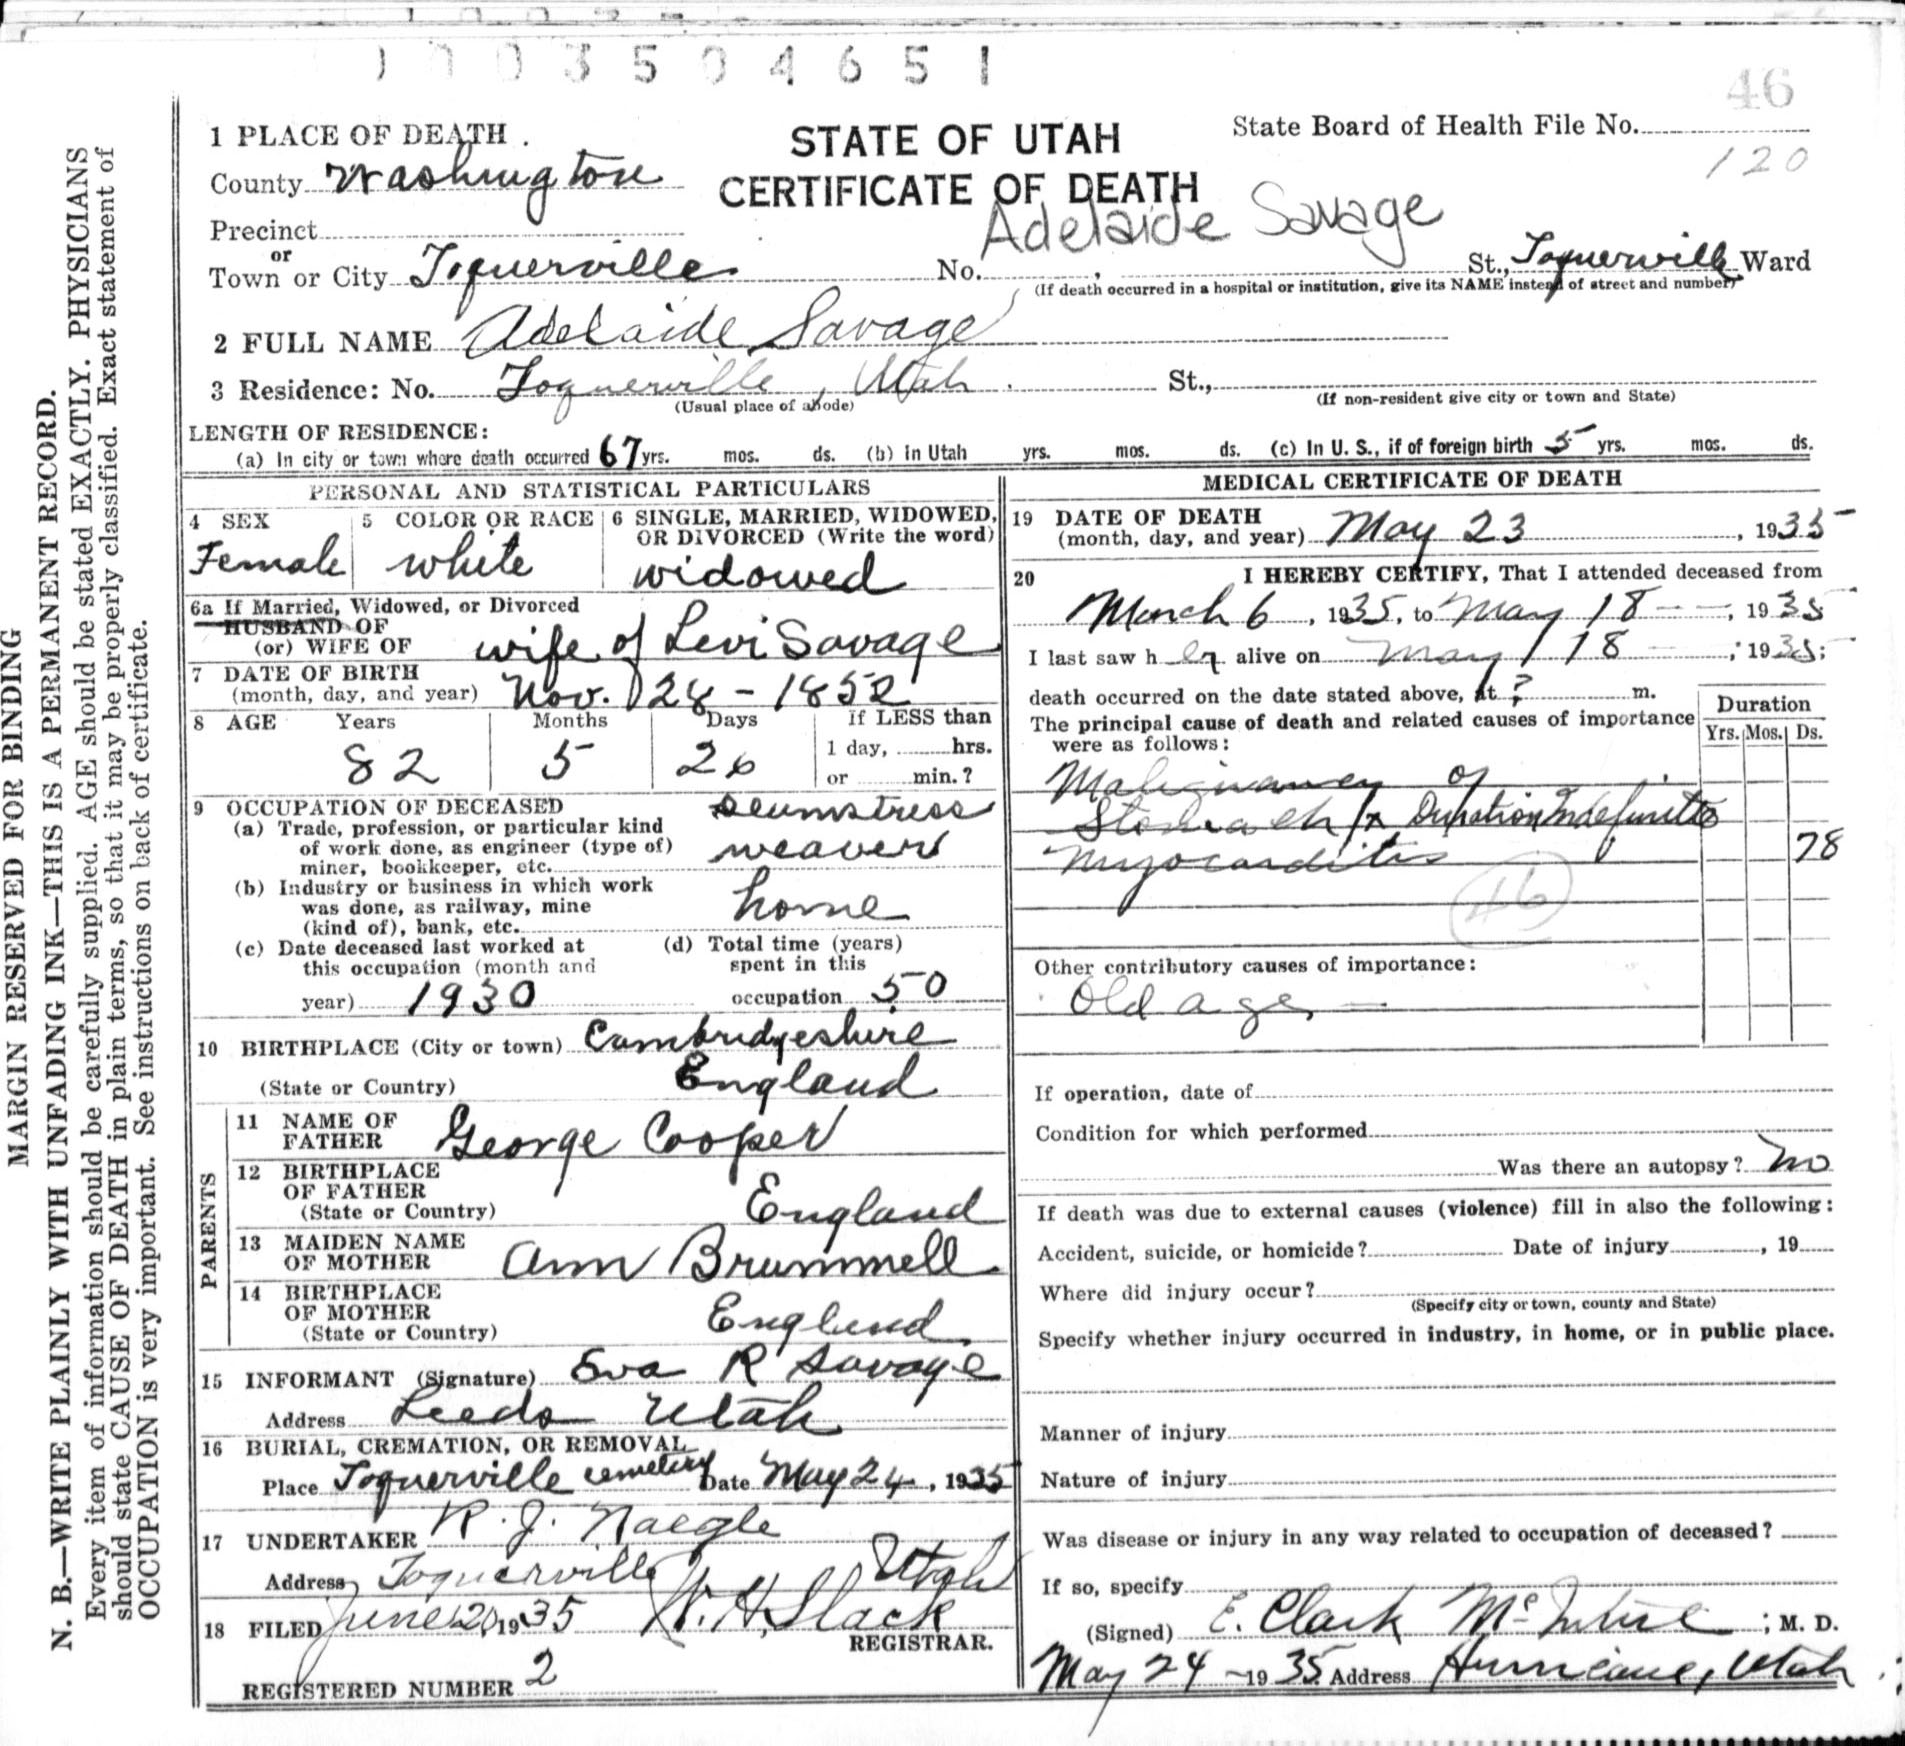 1 0 0 3 5 0 4 6 5 1
46
1 PLACE OF DEATH
STATE OF UTAH
State Board of Health File No.
120
County Washington
CERTIFICATE OF DEATH
Adelaide Savage
Precinct
or
Town or City Toquerville No. St., Toquerville Ward
(If death occurred in a hospital or institution, give its NAME instead of street and number)
2 FULL NAME Adelaide Savage
3 Residence: No. Toquerville, Utah. St.,
(Usual place of abode) (If non-resident give city or town and State)
LENGTH OF RESIDENCE:
(a) In city or town where death occurred 67 yrs. mos. ds. (b) in Utah yrs. mos. ds. (c) In U. S., if of foreign birth 5 yrs. mos. ds.
PERSONAL AND STATISTICAL PARTICULARS
4 SEX Female
5 COLOR OR RACE white
6 SINGLE, MARRIED, WIDOWED,
OR DIVORCED (Write the word)
widowed
6a If Married, Widowed, or Divorced
HUSBAND OF
(or) WIFE OF wife of Levi Savage
7 DATE OF BIRTH
(month, day, and year) Nov. 28 - 1852
8 AGE Years Months Days If LESS than
82 5 26 1 day, hrs.
or min.?
9 OCCUPATION OF DECEASED seumstress
(a) Trade, profession, or particular kind
of work done, as engineer (type of) weaver
miner, bookkeeper, etc.
(b) Industry or business in which work
was done, as railway, mine home
(kind of), bank, etc.
(c) Date deceased last worked at
this occupation (month and
year) 1930
(d) Total time (years)
spent in this
occupation 50
10 BIRTHPLACE (City or town) Cambridgeshire
(State or Country) England
PARENTS
11 NAME OF
FATHER George Cooper
12 BIRTHPLACE
OF FATHER
(State or Country) England
13 MAIDEN NAME
OF MOTHER Ann Brummell
14 BIRTHPLACE
OF MOTHER
(State or Country) England
15 INFORMANT (Signature) Eva R Savage
Address Leeds Utah
16 BURIAL, CREMATION, OR REMOVAL
Place Toquerville cemetery Date May 24, 1935
17 UNDERTAKER R. J. Naegle
Address Toquerville Utah
18 FILED June 20, 1935 W. H. Slack
REGISTRAR.
REGISTERED NUMBER 2
MEDICAL CERTIFICATE OF DEATH
19 DATE OF DEATH
(month, day, and year) May 23, 1935
20 I HEREBY CERTIFY, That I attended deceased from
March 6, 1935, to May 18, 1935
I last saw her alive on May 18, 1935;
death occurred on the date stated above, at ? m.
The principal cause of death and related causes of importance
were as follows:
Duration
Yrs. Mos. Ds.
Malignancy of
Stomach Duration Indefinite
Myocarditis 78
46
Other contributory causes of importance:
Old age
If operation, date of
Condition for which performed
Was there an autopsy? no
If death was due to external causes (violence) fill in also the following:
Accident, suicide, or homicide? Date of injury, 19
Where did injury occur?
(Specify city or town, county and State)
Specify whether injury occurred in industry, in home, or in public place.
Manner of injury
Nature of injury
Was disease or injury in any way related to occupation of deceased?
If so, specify
(Signed) E. Clark McIntire; M. D.
May 24 - 1935 Address Hurricane, Utah
MARGIN RESERVED FOR BINDING
N. B.—WRITE PLAINLY WITH UNFADING INK—THIS IS A PERMANENT RECORD.
Every item of information should be carefully supplied. AGE should be stated EXACTLY. PHYSICIANS
should state CAUSE OF DEATH in plain terms, so that it may be properly classified. Exact statement of
OCCUPATION is very important. See instructions on back of certificate.